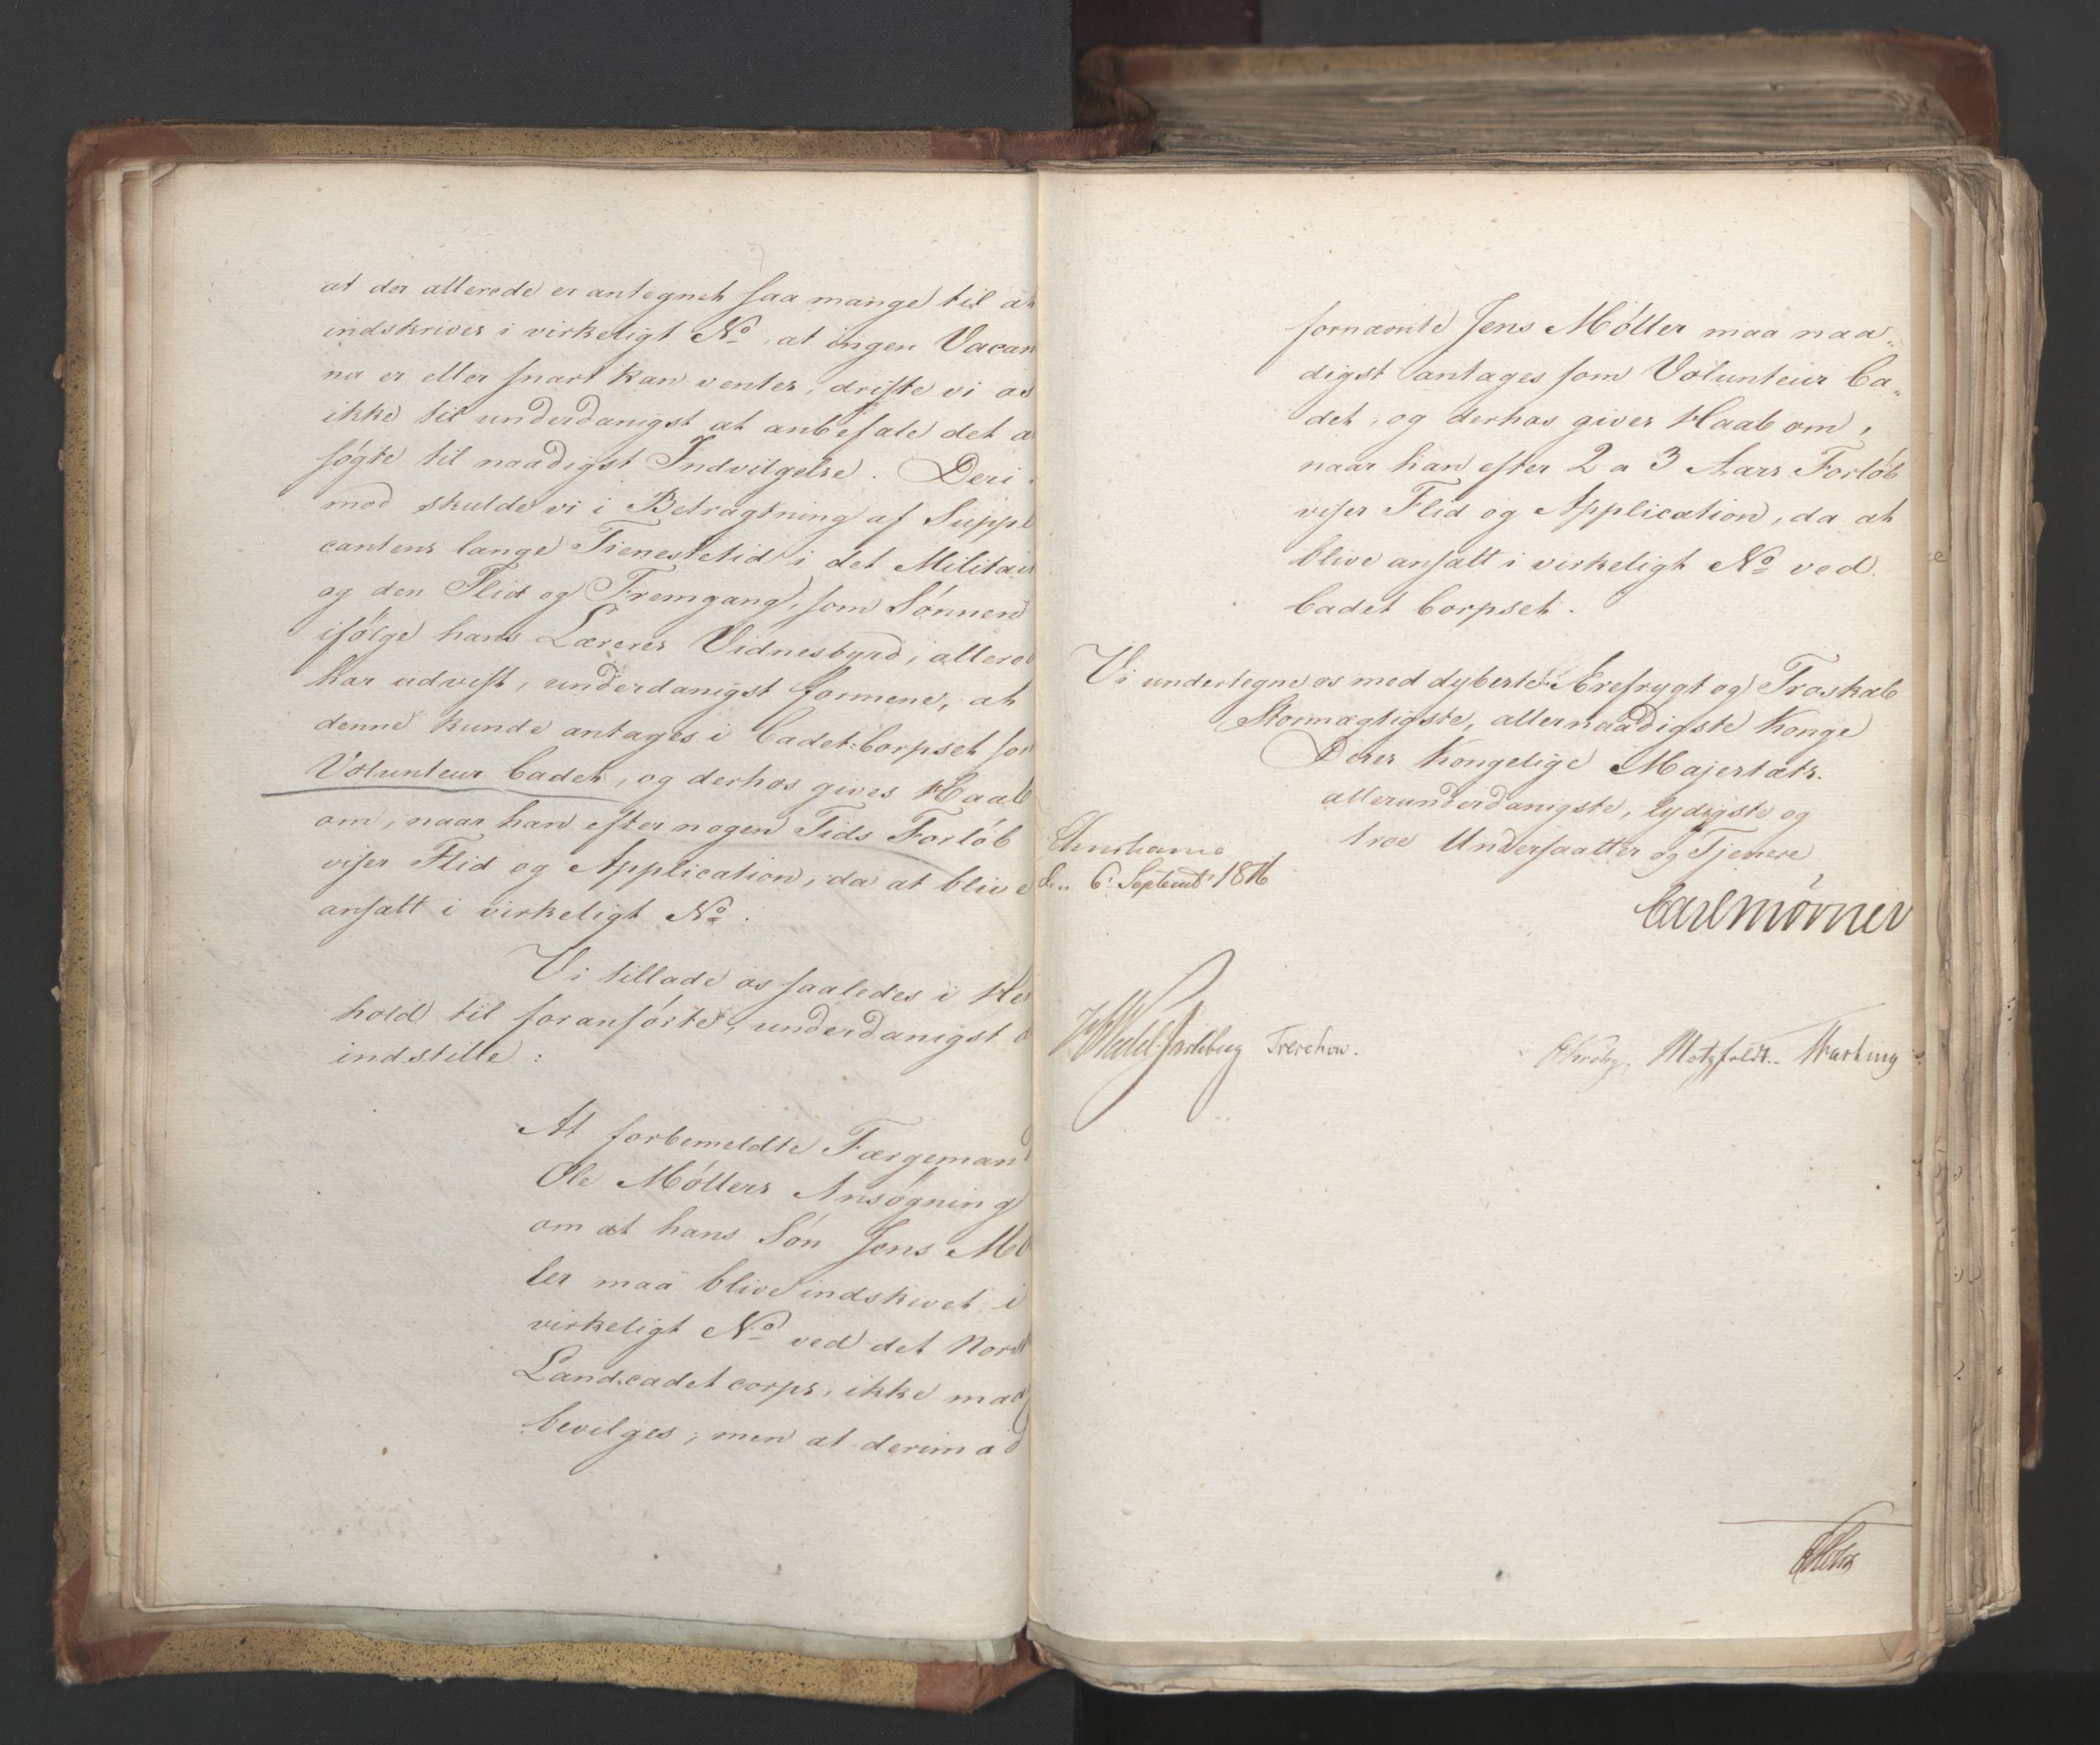 at der allerede er antegnet saa mange til at
indskrives i virkeligt No, at ingen Vacan
nu er eller snart kan ventes, driste vi os
ikke til underdanigst at anbefale det a
søgte til naadigst Indvilgelse. Deri
mod skulde vi i Betragtning af Suppl
cantens lange Tienestetid i det Militair
og den Flid og Fremgang, som Sønnen
ifølge hans Læreres Vidnesbyrd, allered
har udvist, underdanigst formene, at
denne kunde antages i Cadet-Corpset som
Volunteur Cadet, og derhos gives Haab
om, naar han efter nogen Tids Forløb
viser Flid og Application, da at blive
ansatt i virkeligt No.
Vi tillade os saaledes i Hen
hold til foranførte, underdanigst a
indstille:
At forbemeldte Færgemand
Ole Møllers Ansøgning
om at hans Søn Jens Møl
ler maa blive indskevet i
virkeligt No ved det Norsk
Landcadetcorps, ikke maa
bevilges; men at derimod
fornævnte Jens Møller maa naa„
digst antages som Volunteur Ca„
det, og derhos gives Haab om,
naar han efter 2 a 3 Aars Forløb
viser Flid og Application, da at
blive ansatt i virkeligt No ved
Cadet Corpset.
Vi undertegne os med dybeste Ærefrygt og Troskab
Stormægtigste, allernaadigste Konge
Deres Kongelige Majestæts
allerunderdanigste, lydigste og
troe Undersaatter og Tjenere
Christiania
den 6. Septembr 1816
Carl Mörner
HWedel-Jarlsberg Treschow.
CKrohg. Motzfeldt. Hasting